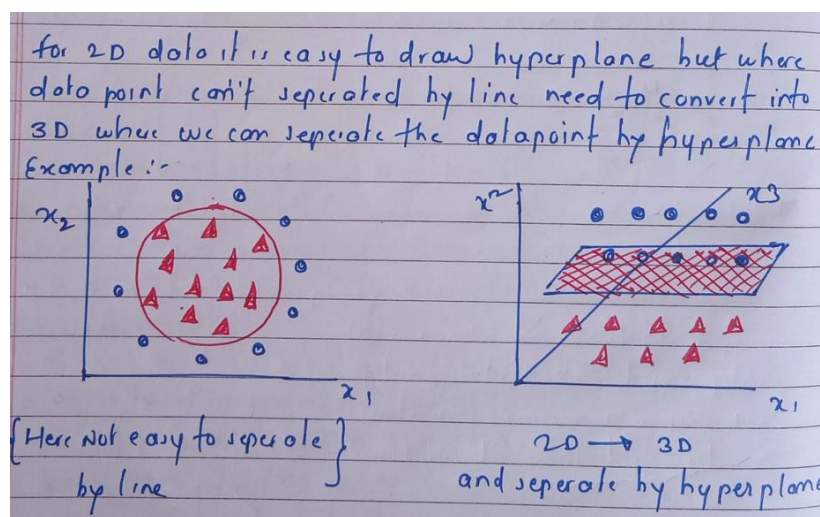 for 2D data it is easy to draw hyperplane but where
data point can't seperated by line need to convert into
3D where we can seperate the datapoint by hyperplane
Example :-
x2
x1
x2
x3
x1
{Here Not easy to seperate
by line}
2D → 3D
and seperate by hyperplane